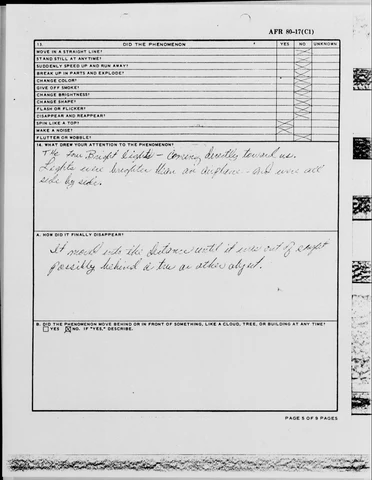 AFR 80-17(C1)
13. DID THE PHENOMENON YES NO UNKNOWN
MOVE IN A STRAIGHT LINE?
STAND STILL AT ANYTIME?
SUDDENLY SPEED UP AND RUN AWAY?
BREAK UP IN PARTS AND EXPLODE?
CHANGE COLOR?
GIVE OFF SMOKE?
CHANGE BRIGHTNESS?
CHANGE SHAPE?
FLASH OR FLICKER?
DISAPPEAR AND REAPPEAR?
SPIN LIKE A TOP?
MAKE A NOISE?
FLUTTER OR WOBBLE?
14. WHAT DREW YOUR ATTENTION TO THE PHENOMENON?
The four Bright lights - Coming directly toward us.
Lights were brighter than an airplane - and were all
side by side.
A. HOW DID IT FINALLY DISAPPEAR?
It moved into the distance until it was out of sight
possibly behind a tree or other object.
B. DID THE PHENOMENON MOVE BEHIND OR IN FRONT OF SOMETHING, LIKE A CLOUD, TREE, OR BUILDING AT ANY TIME?
YES NO. IF "YES," DESCRIBE.
PAGE 5 OF 8 PAGES